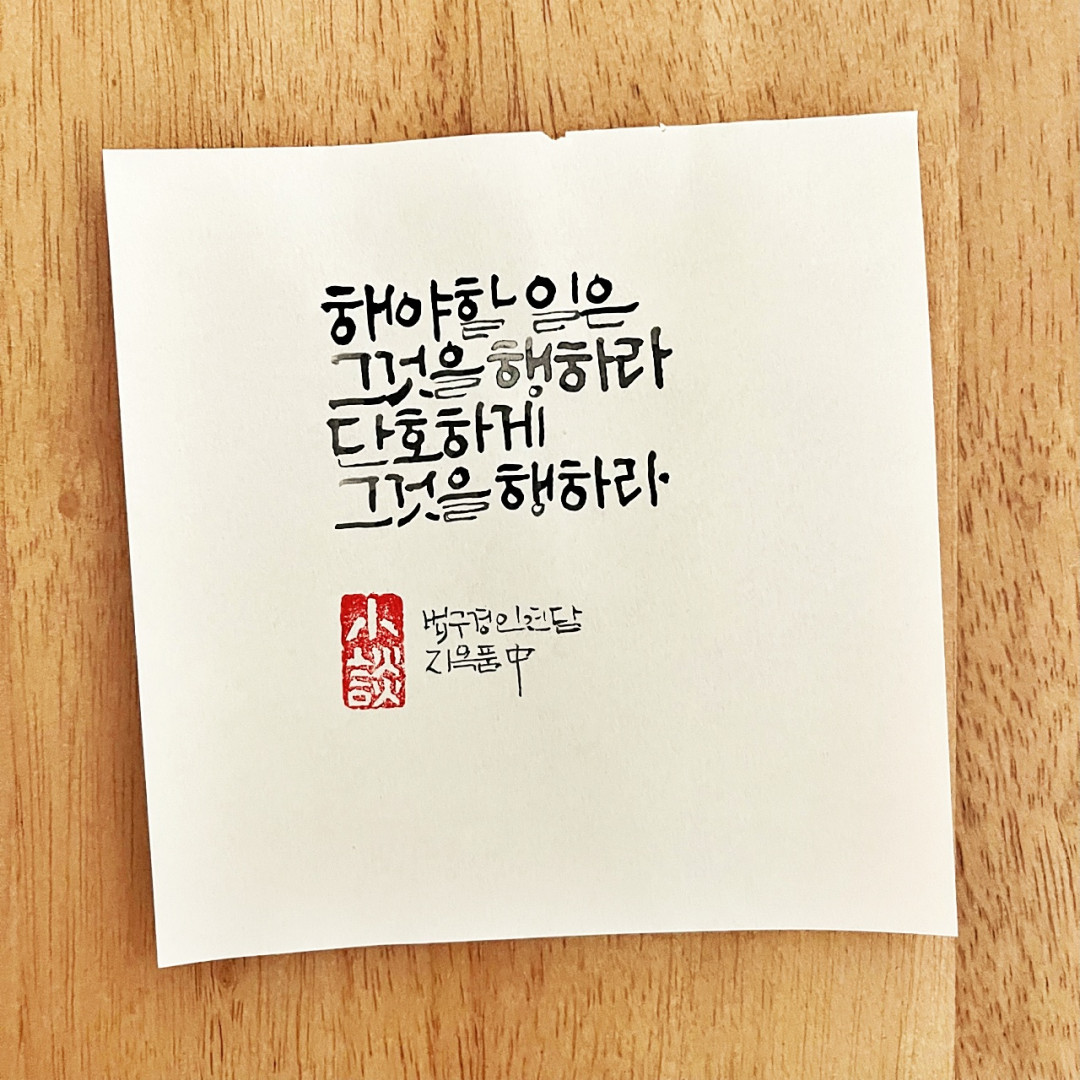 해야할 일은
그것을 행하라
단호하게
그것을 행하라.
小談
법구경인연담
지옥품中